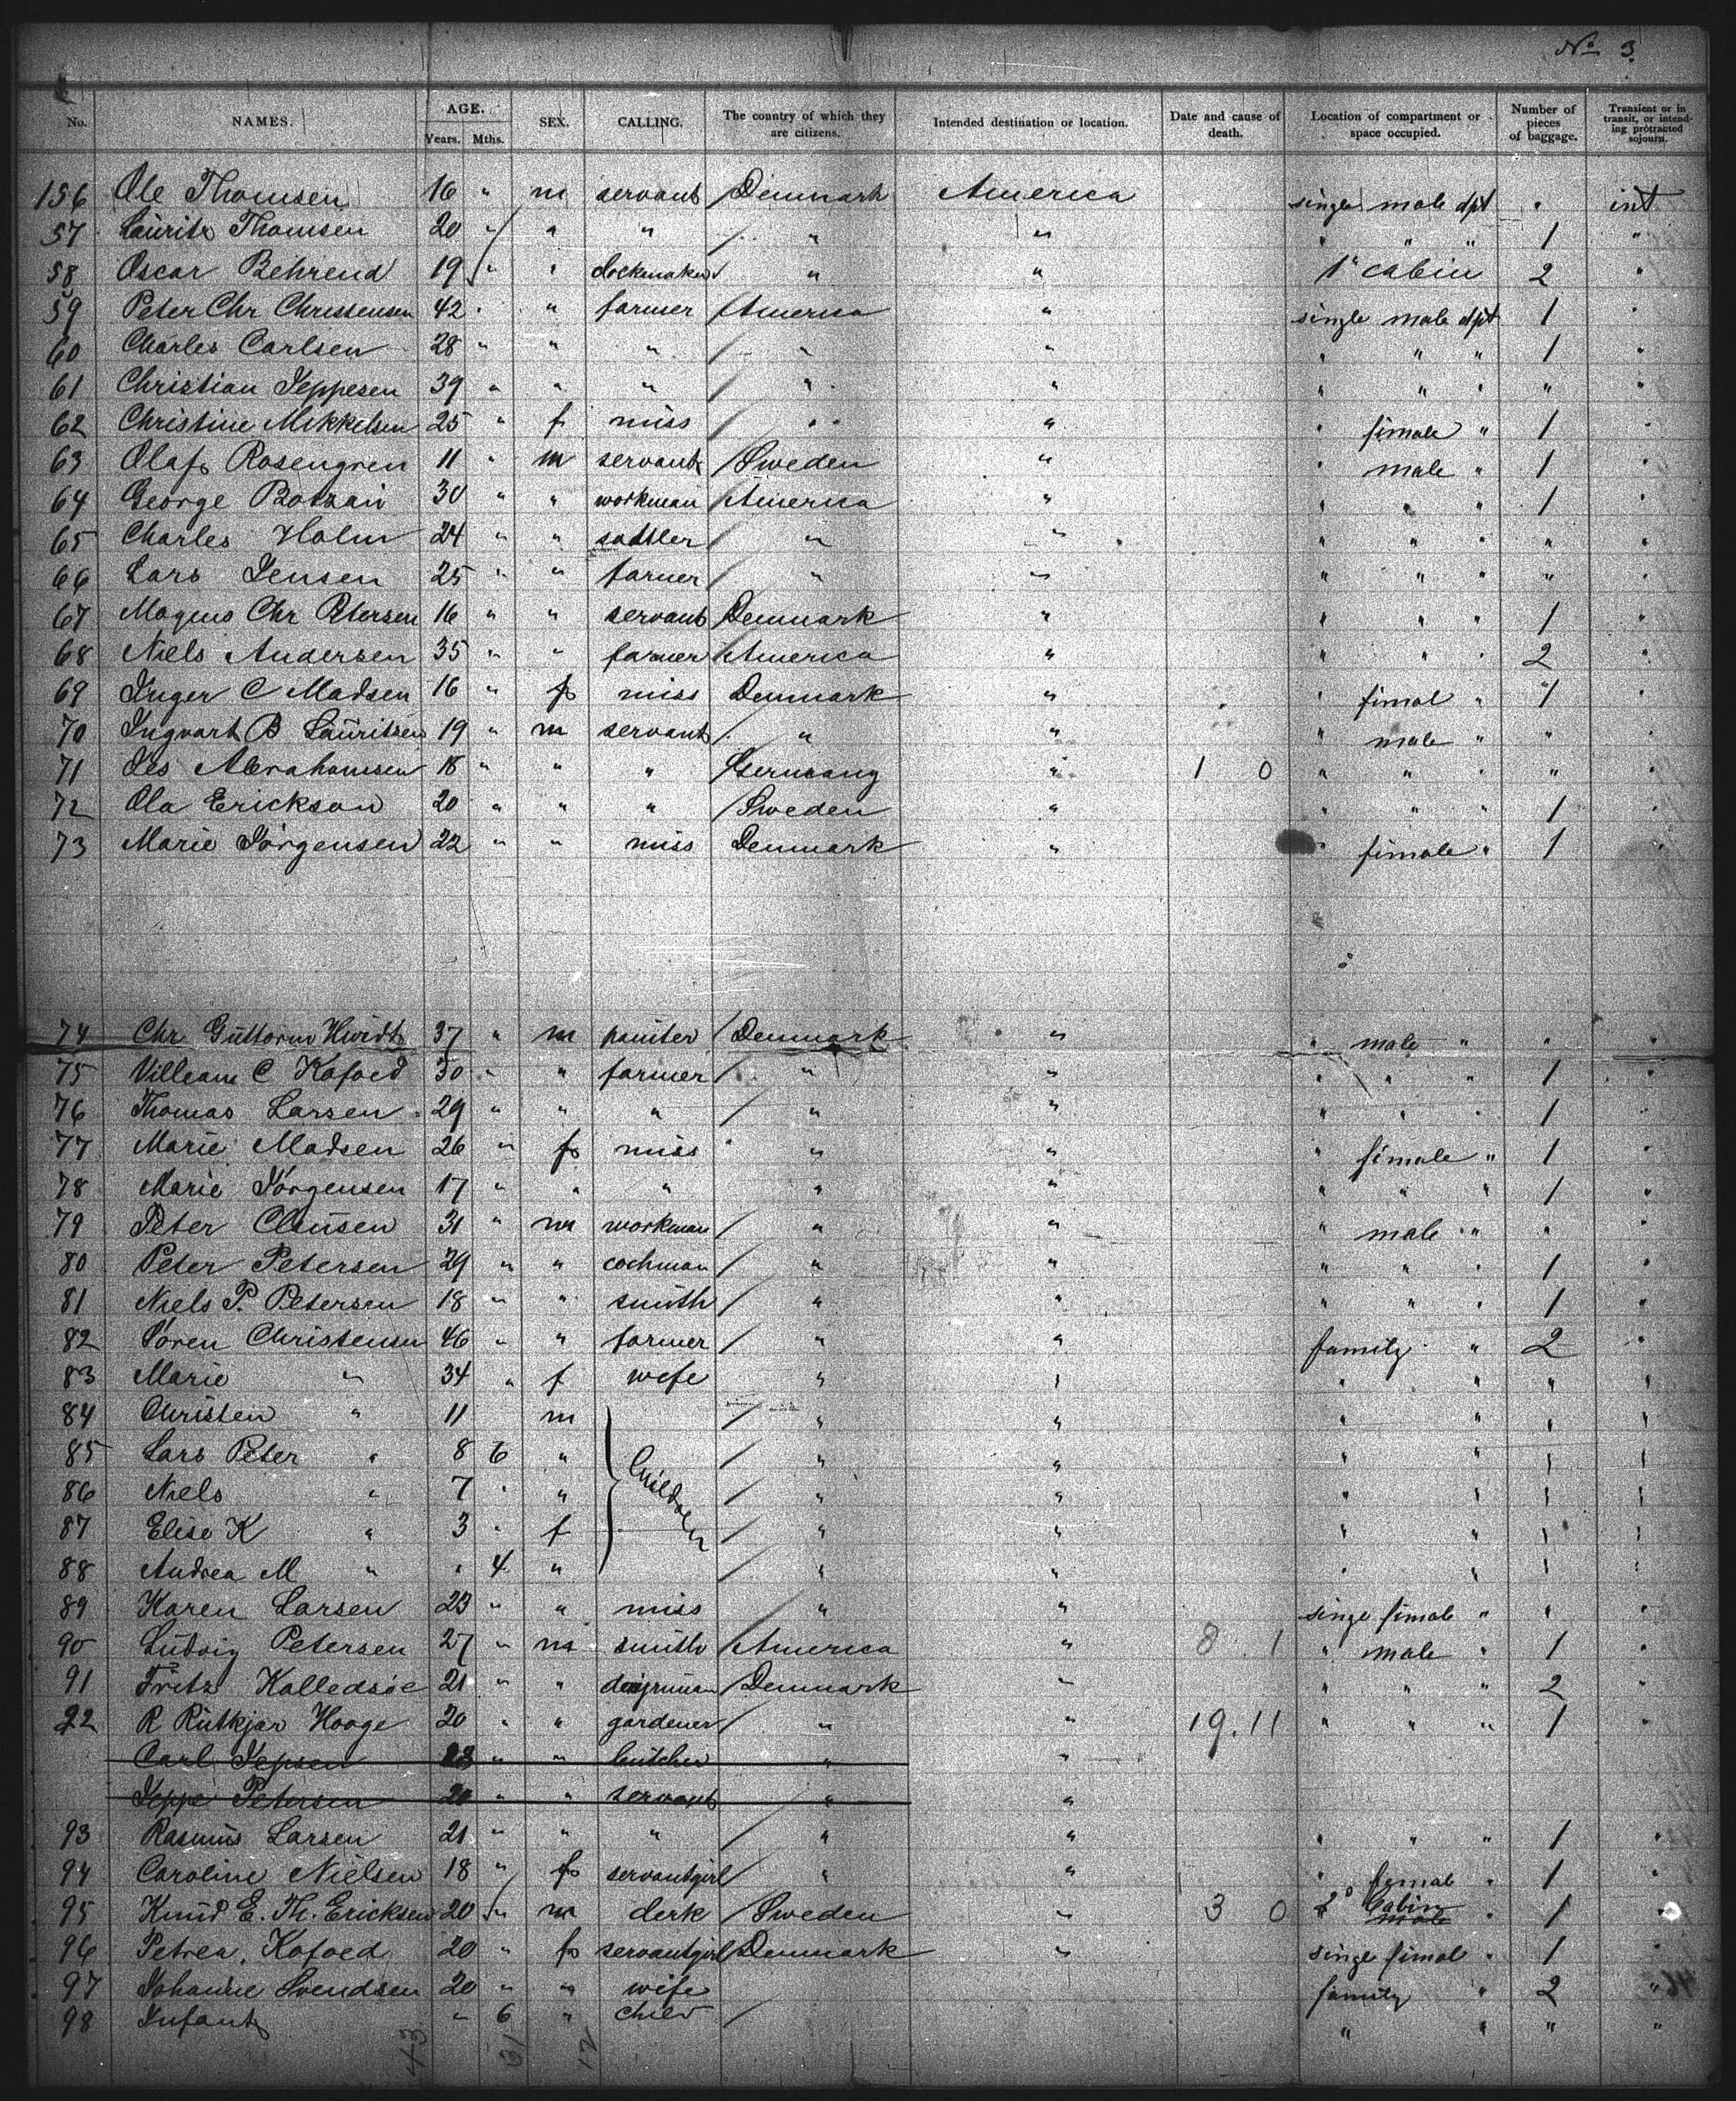 No 3.
No. NAMES. AGE. Years. Mths. SEX. CALLING. The country of which they are citizens. Intended destination or location. Date and cause of death. Location of compartment or space occupied. Number of pieces of baggage. Transient or in transit, or intending protracted sojourn.
156 Ole Thomsen 16 " m servant Denmark America single male dpt " int
57 Lauritz Thomsen 20 " " " " " " " " 1 "
58 Oscar Behrend 19 " " clockmaker " " 1" cabin 2 "
59 Peter Chr Christensen 42 " " farmer America " single male dpt 1 "
60 Charles Carlsen 28 " " " " " " " " 1 "
61 Christian Jeppesen 39 " " " " " " " " " "
62 Christine Mikkelsen 25 " f miss " " " fimale " 1 "
63 Olaf Rosengren 11 " m servant Sweden " " male " 1 "
64 George Botzain 30 " " workman America " " " " 1 "
65 Charles Holm 24 " " sadtler " " " " " " "
66 Lars Jensen 25 " " farmer " " " " " " "
67 Magnus Chr Petersen 16 " " servant Denmark " " " " 1 "
68 Niels Andersen 35 " " farmer America " " " " 2 "
69 Inger C Madsen 16 " f miss Denmark " " fimal " 1 "
70 Ingvart B Lauritsen 19 " m servant " " " male " " "
71 Jes Abrahamsen 18 " " " Germany " 1 0 " " " " "
72 Ola Erickson 20 " " " Sweden " " " " 1 "
73 Marie Jörgensen 22 " " miss Denmark " " fimale " 1 "
74 Chr Guttorm Hwidt 37 " m painter Denmark " " male " " "
75 Villeam C Kofoed 30 " " farmer " " " " " 1 "
76 Thomas Larsen 29 " " " " " " " " 1 "
77 Marie Madsen 26 " f miss " " " fimale " 1 "
78 Marie Jörgensen 17 " " " " " " " " 1 "
79 Peter Clausen 31 " m workman " " " male " " "
80 Peter Petersen 29 " " cochman " " " " " 1 "
81 Niels P. Petersen 18 " " smith " " " " " 1 "
82 Sören Christensen 46 " " farmer " " family " 2 "
83 Marie " 34 " f wefe " " " " " "
84 Christen " 11 m Children " " " " " "
85 Lars Peter " 8 6 " " " " " " "
86 Niels " 7 " " " " " " " "
87 Elise K " 3 " f " " " " " "
88 Andrea M " " 4 " " " " " " "
89 Karen Larsen 23 " " miss " " singe fimale " " "
90 Ludvig Petersen 27 " m smith America " 8 1 " male " 1 "
91 Fritz Kolledsöe 21 " " Denmark " " " " 2 "
22 R Rutkjar Hooge 20 " " gardener " " 19.11 " " " 1 "
Carl Jepsen 23 " " butcher " "
Jeppe Petersen 20 " " servant " "
93 Rasmus Larsen 21 " " " " " " " " 1 "
94 Caroline Nielsen 18 " f servantgirl " " " femal " 1 "
95 Knud E. Th. Ericksen 20 " m clerk Sweden " 3 0 2° Cabin male " 1
96 Petrea Kofoed 20 " f servantgirl Denmark " singe fimal " 1 "
97 Johanne Svendsen 20 " " wife family " 2 "
98 Infant " 6 " child " " " "
43 31 12